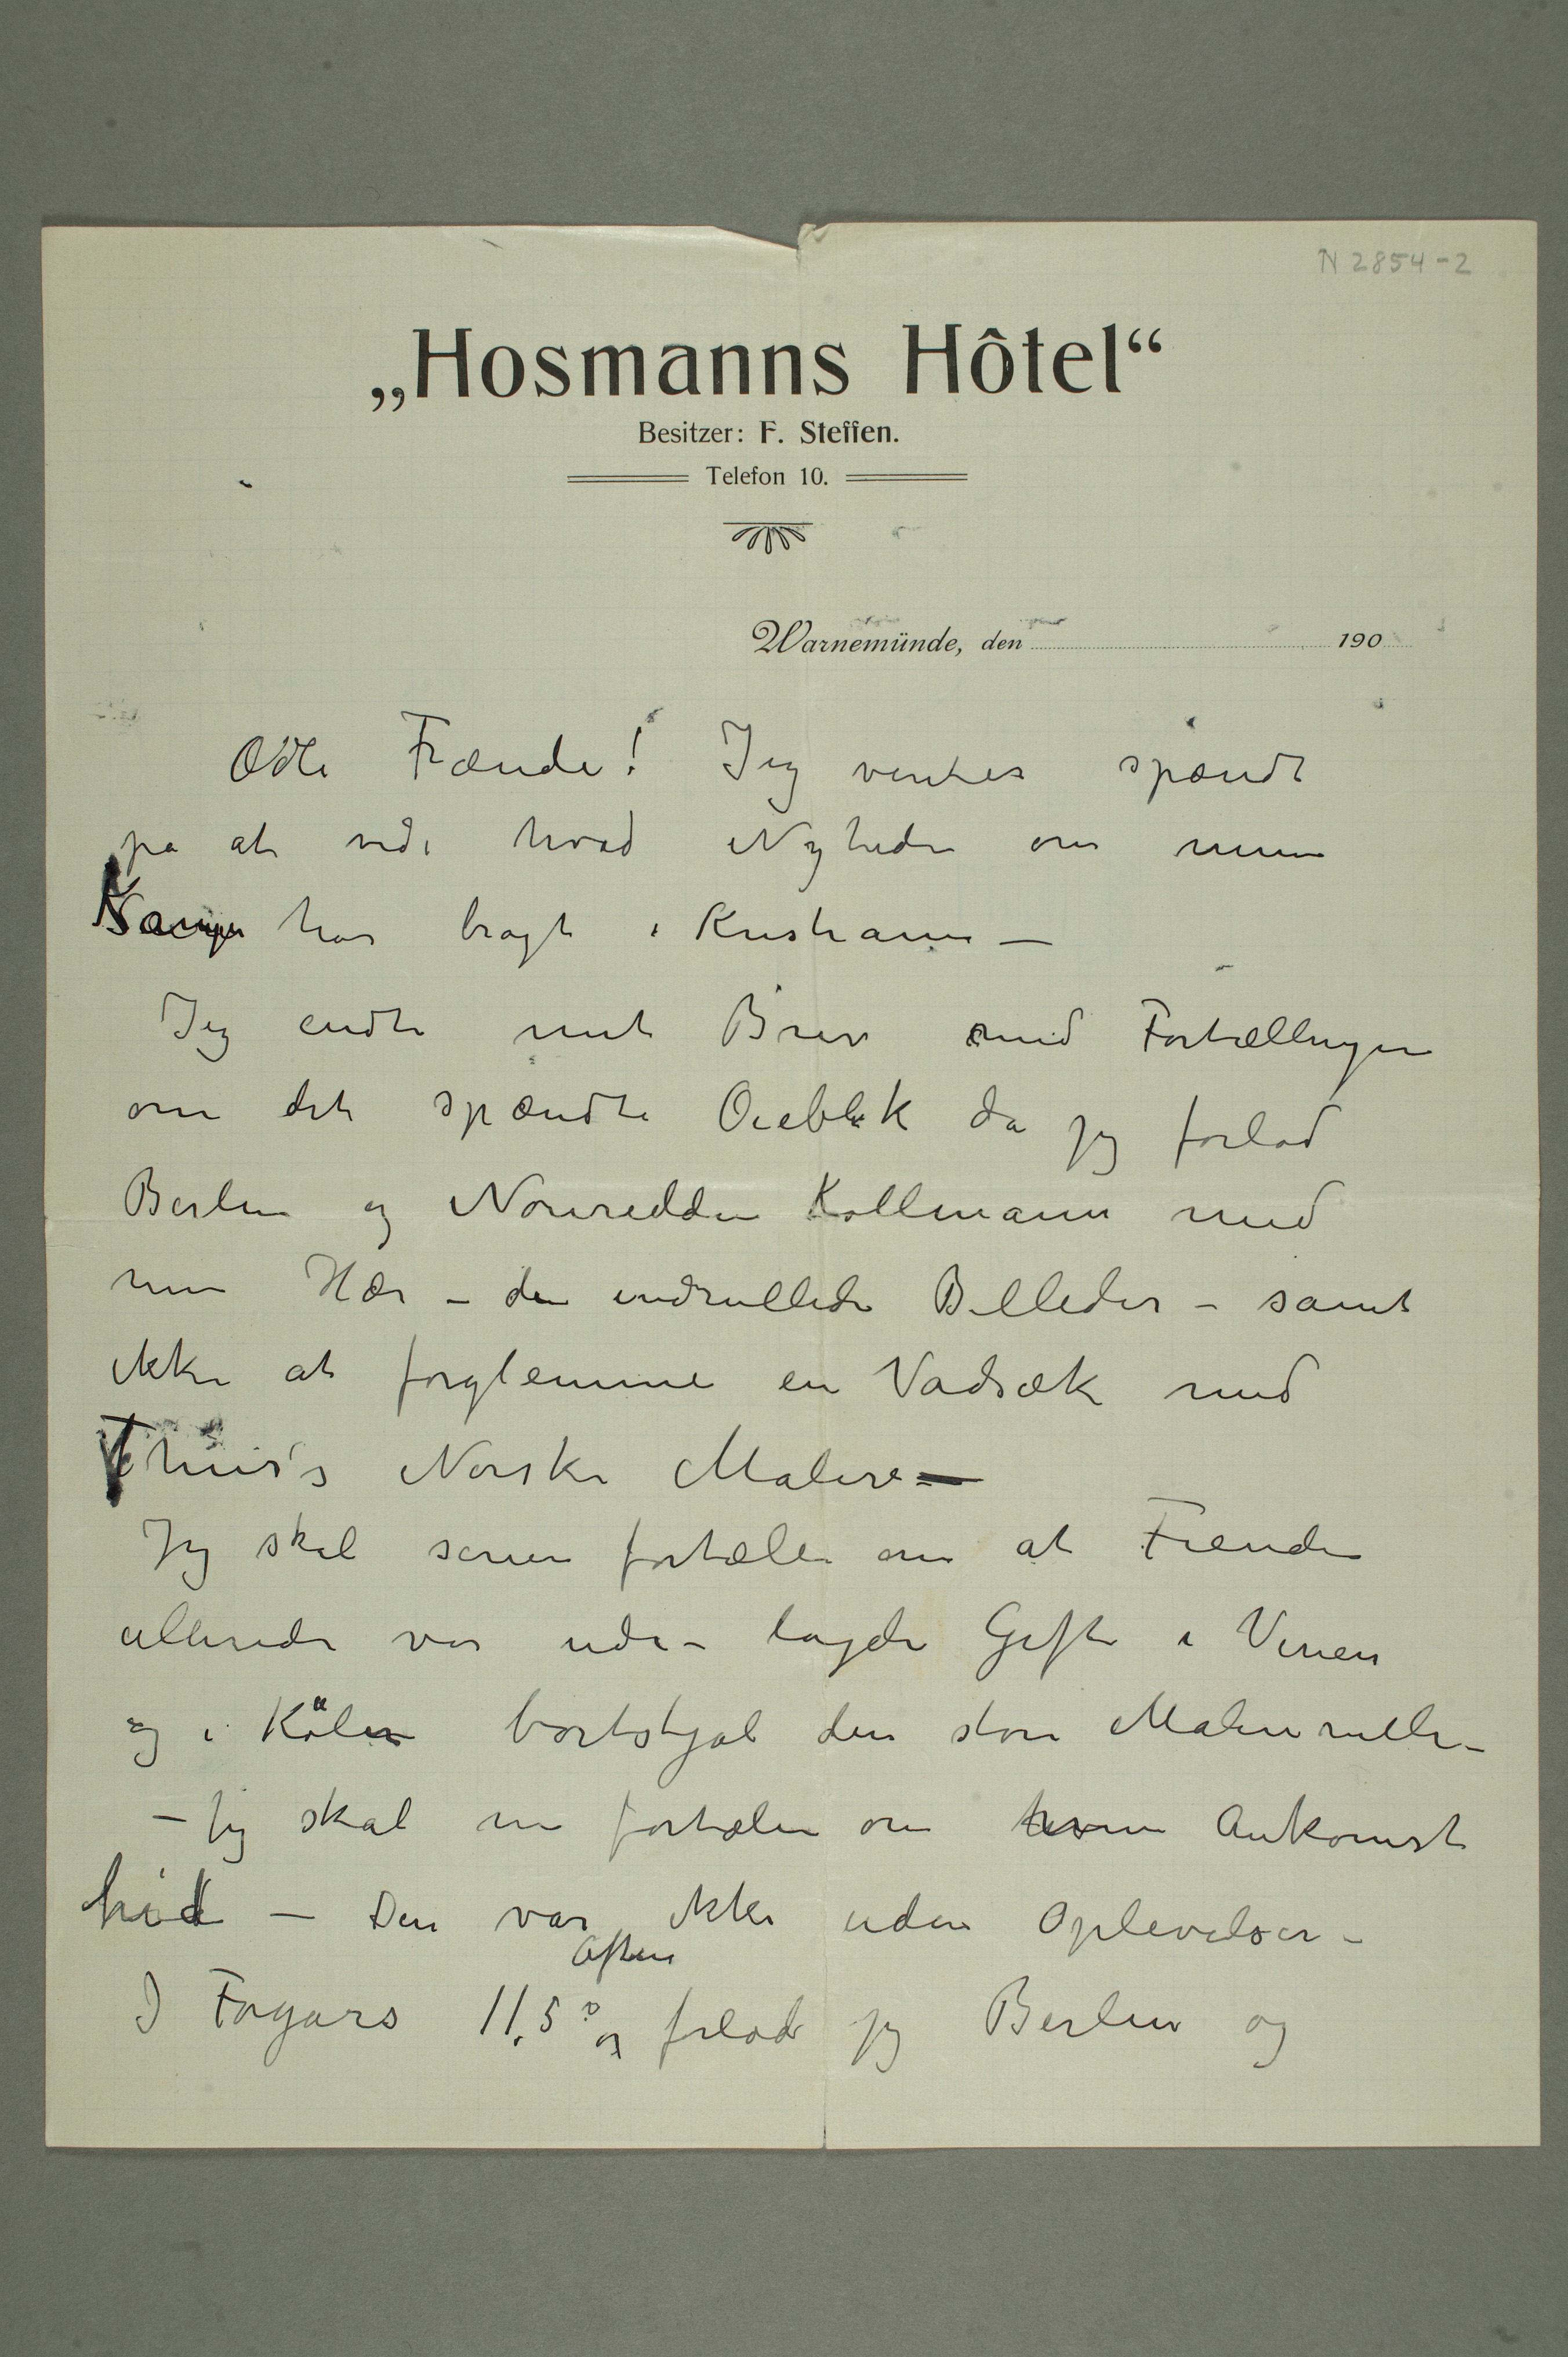 N 2854-2
„Hosmanns Hôtel“
Besitzer: F. Steffen.
Telefon 10.
Warnemünde, den 190
Ædle Frænde! Jeg venter spændt
på at vide hvad Nyheden om mine
Kampe har bragt i Kristiania –
Jeg endte mit Brev med Fortællingen
om det spændte Øieblik da jeg forlod
Berlin og Noureddin Kollmann med
min Hær – de indrullede Billeder – samt
ikke at forglemme en Vadsæk med
Thiis's Norske Malere –
Jeg skal senere fortælle om at Fienden
allerede var ude – lagde Gift i Vinen
og i Köln bortstjal den store Malerirulle –
– Jeg skal nu fortælle om min Ankomst
hid – Den var ikke uden Oplevelser –
Aften
I Forgårs 11.50 og forlod jeg Berlin og